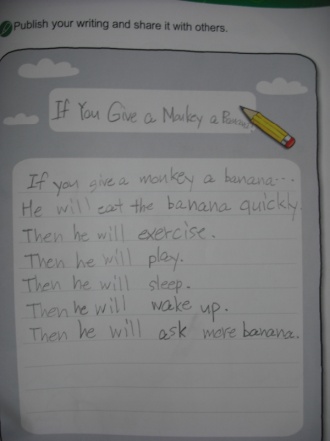 Publish your writing and share it with others.
If You Give a Monkey a Banana
If you give a monkey a banana...
He will eat the banana quickly.
Then he will exercise.
Then he will play.
Then he will sleep.
Then he will wake up.
Then he will ask more banana.